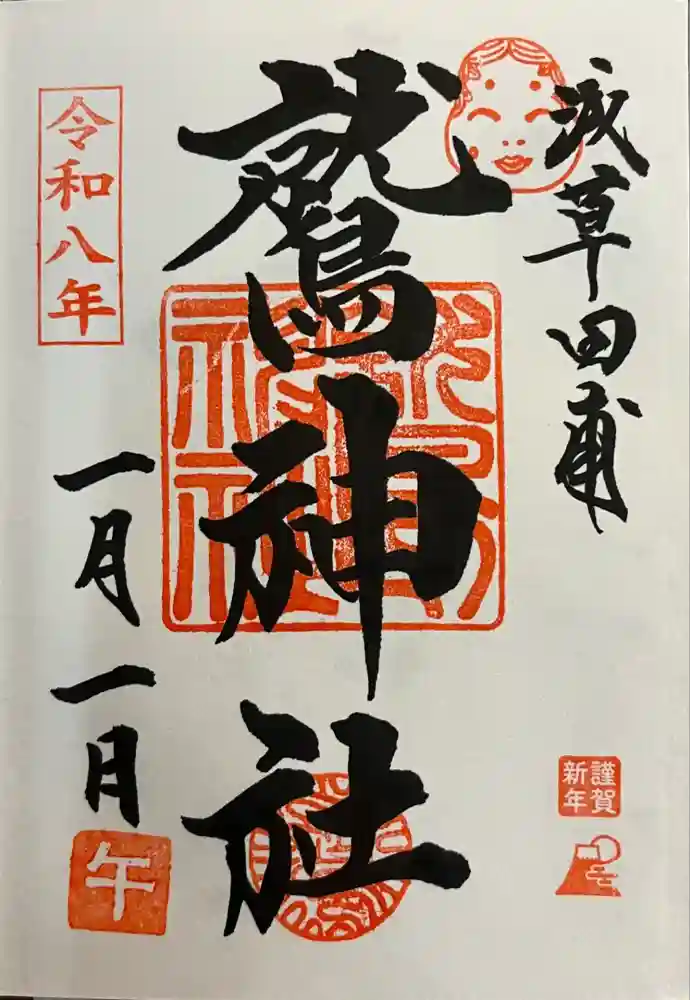 浅草田甫
謹賀
新年
鷲神社
令和八年
一月一日
午